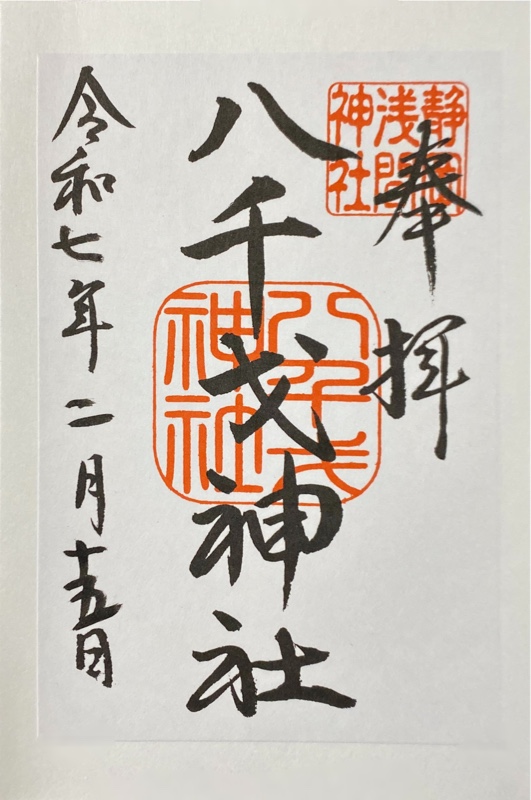 奉拝
静岡浅間神社
八千戈神社
八千戈神社
令和七年二月十五日